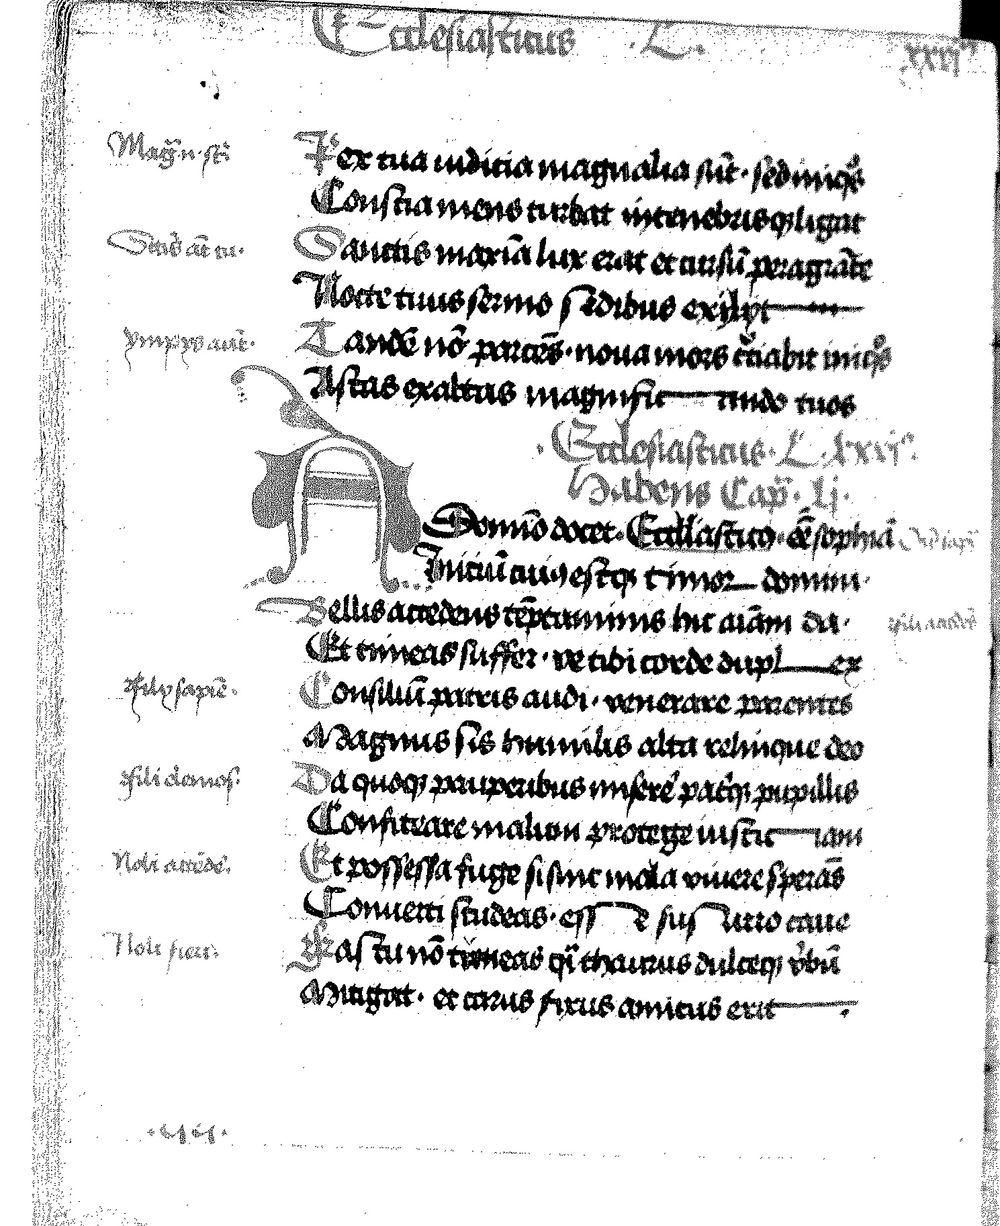 Ecclesiasticus · L ·
xxvj
Magᷓ·n·st̃
Rex tua iuditia magnalia sūt · sed iniqͦs
Constia mens turbat in tenebrisqȝ ligat
Sctīs āt tu·
Sanctis maxīa lux erat et cursū peragrāte
Nocte tuus sermo sedibus exilyt
ympys aūt·
Tandē nō parcēs · noua mors cͨtiabit iniqͦs
Astas exaltas magnific ando tuos
· Ecclesiasticus · L · xxvj ·
habens Cap̃ · lj ·
A Domīo docet · Eccl̄iasticꝰ · ē sophiā
Initiū cuiꝰ estqȝ timor domini ·
Bellis accedens tēptaminis huc aīam da ·
fili accedēs
Et timeas suffer · ve tibi corde dupl ex
fily sapiē·
Consiliū patris audi · venerare parentes
Magnus sis humilis alta relinque deo
fili elemos̃
Da quoqȝ pauperibus miserē patͥqȝ pupillis
Confiteare malum protege iustic iam
Noli accēde·
Et possessa fuge si sint mala viuere sperās
Conuerti studeas · ess e sus urro caue
Noli fieri·
Fas tu nō timeas qͥ thaurus dulceqȝ v̉bū
Mitigat · et carus fixus amicus erit ·